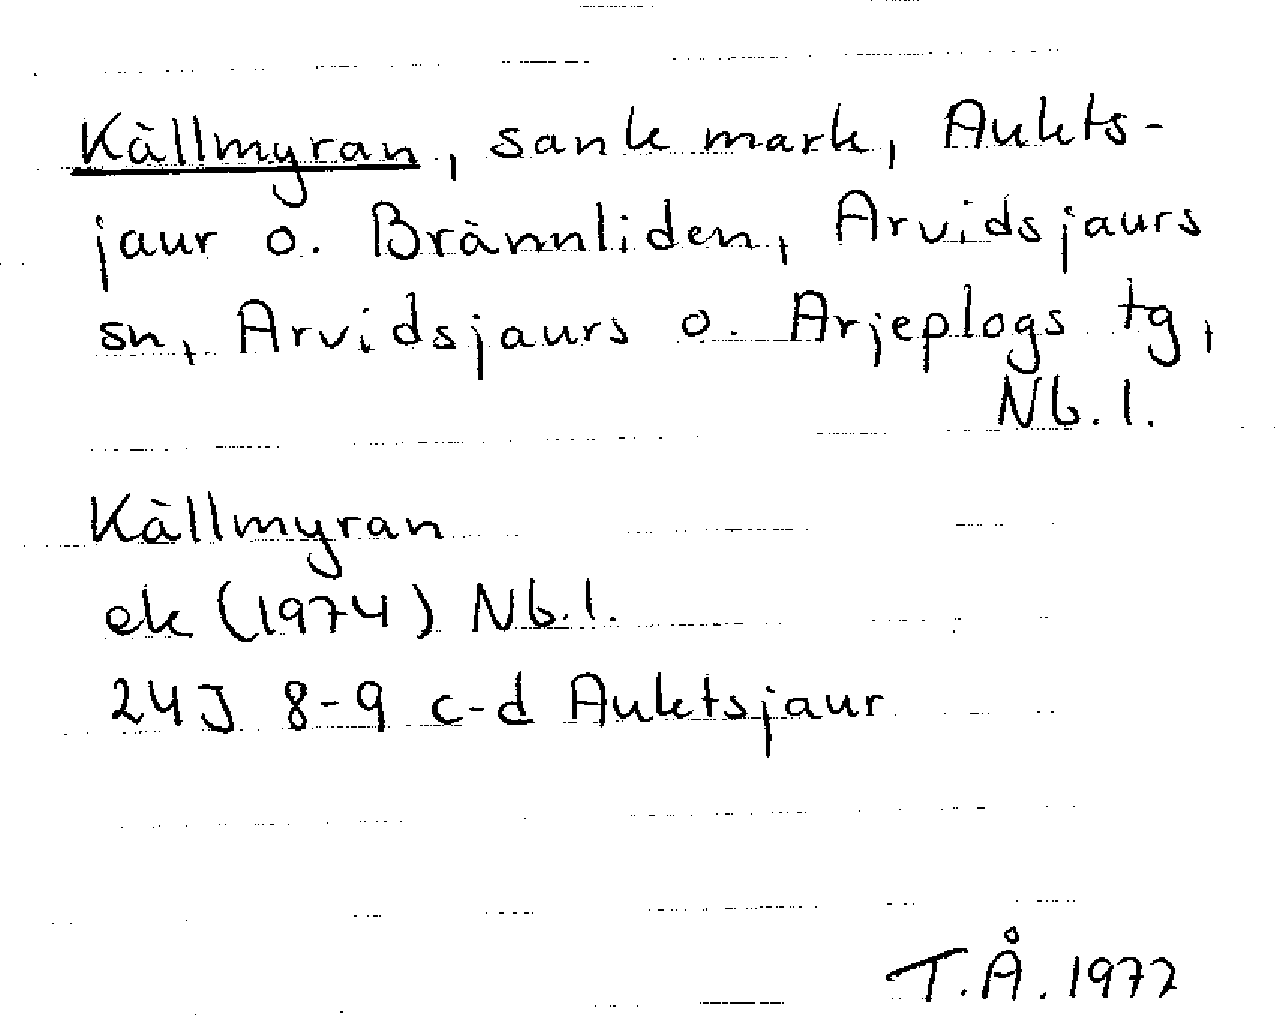 Källmyran, sank mark, Aukts-
jaur o. Brännliden, Arvidsjaurs
sn, Arvidsjaurs o. Arjeplogs tg,
Nb. l.
Källmyran
ek (1974) Nb. l.
24J 8-9 c-d Auktsjaur
T.Å. 1977